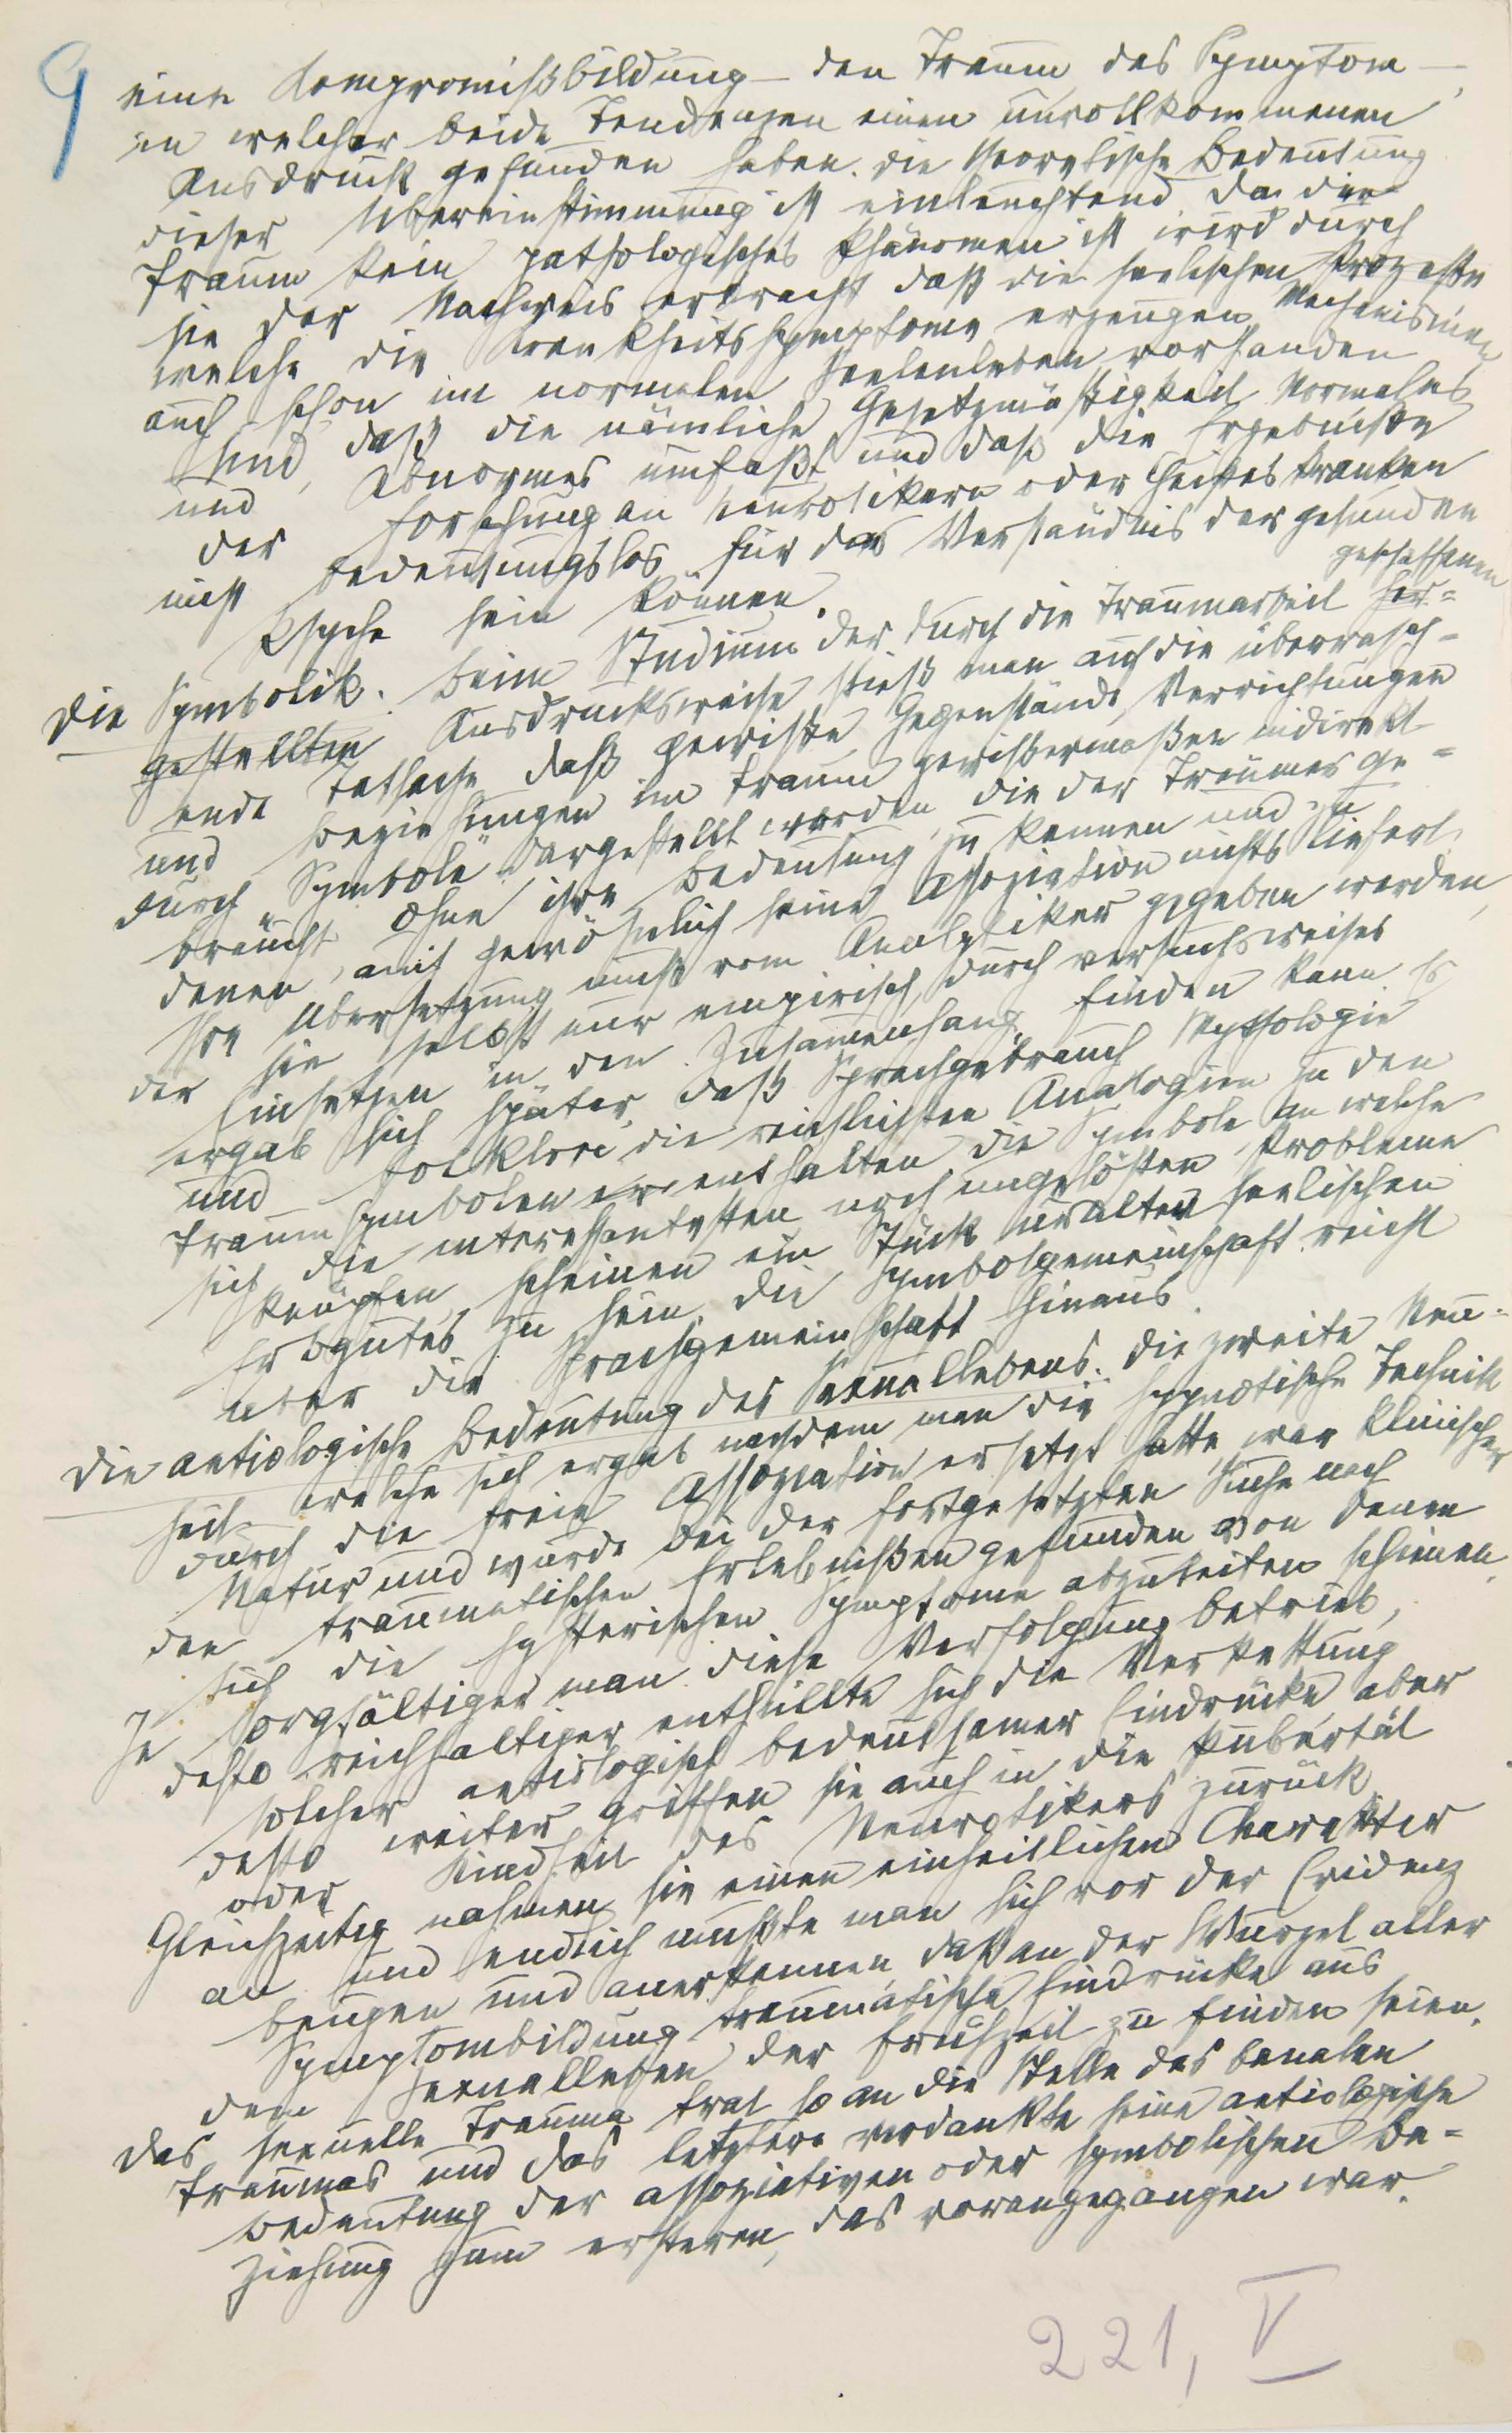 9
eine Kompromißbildung – den Traum das Symptom –,
in welcher beide Tendenzen einen unvollkommenen
Ausdruck gefunden haben. Die theoretische Bedeutung
dieser Übereinstimmung ist einleuchtend. Da der
Traum kein pathologisches Phänomen ist wird durch
sie der Nachweis erbracht daß die seelischen Prozesse
welche die Krankheitssymptome erzeugen Mechanismen
auch schon im normalen Seelenleben vorhanden
sind, daß die nämliche Gesetzmäßigkeit Normales
und Abnormes umfaßt und daß die Ergebnisse
der Forschung an Neurotikern oder Geisteskranken
nicht bedeutungslos für das Verständnis der gesunden
Psyche sein können.
geschaffenen
Die Symbolik. Beim Studium der durch die Traumarbeit her=
gestellten Ausdrucksweise stieß man auf die überrasch=
ende Tatsache daß gewisse Gegenstände, Verrichtungen
und Beziehungen im Traum gewissermaßen indirekt
durch „Symbole" dargestellt werden, die der Träumer ge=
braucht ohne ihre Bedeutung zu kennen und zu
denen, auch gewöhnlich seine Assoziation nichts liefert.
Ihre Übersetzung muß vom Analytiker gegeben werden,
der sie selbst nur empirisch, durch versuchsweises
Einsetzen in den Zusammenhang finden kann. Es
ergab sich später, daß Sprachgebrauch Mythologie
und Folklore die reichlichsten Analogien zu den
Traumsymbolen enthalten. Die Symbole an welche
sich die interessantesten noch ungelösten Probleme
knüpfen, scheinen ein Stück uralten seelischen
Erbgutes zu sein. Die Symbolgemeinschaft reicht
über die Sprachgemeinschaft hinaus.
Die aetiologische Bedeutung des Sexuallebens. Die zweite Neu=
heit welche sich ergab nachdem man die hypnotische Technik
durch die freie Assoziation ersetzt hatte, war klinischer
Natur und wurde bei der fortgesetzten Suche nach
den traumatischen Erlebnißen gefunden von denen
sich die hysterischen Symptome abzuleiten schienen.
Je sorgfältiger man diese Verfolgung betrieb,
desto reichhaltiger enthüllte sich die Verkettung
solcher aetiologisch bedeutsamer Eindrücke, aber
desto weiter griffen sie auch in die Pubertät
oder Kindheit des Neurotikers zurück.
Gleichzeitig nahmen sie einen einheitlichen Charakter
an und endlich mußte man sich vor der Evidenz
beugen und anerkennen daß an der Wurzel aller
Symptombildung traumatische Eindrücke aus
dem Sexualleben der Frühzeit zu finden seien.
Das sexuelle Trauma trat so an die Stelle des banalen
Traumas und das letztere verdankte seine aetiologische
Bedeutung der assoziativen oder symbolischen Be=
ziehung zum ersteren, das vorangegangen war.
221, V